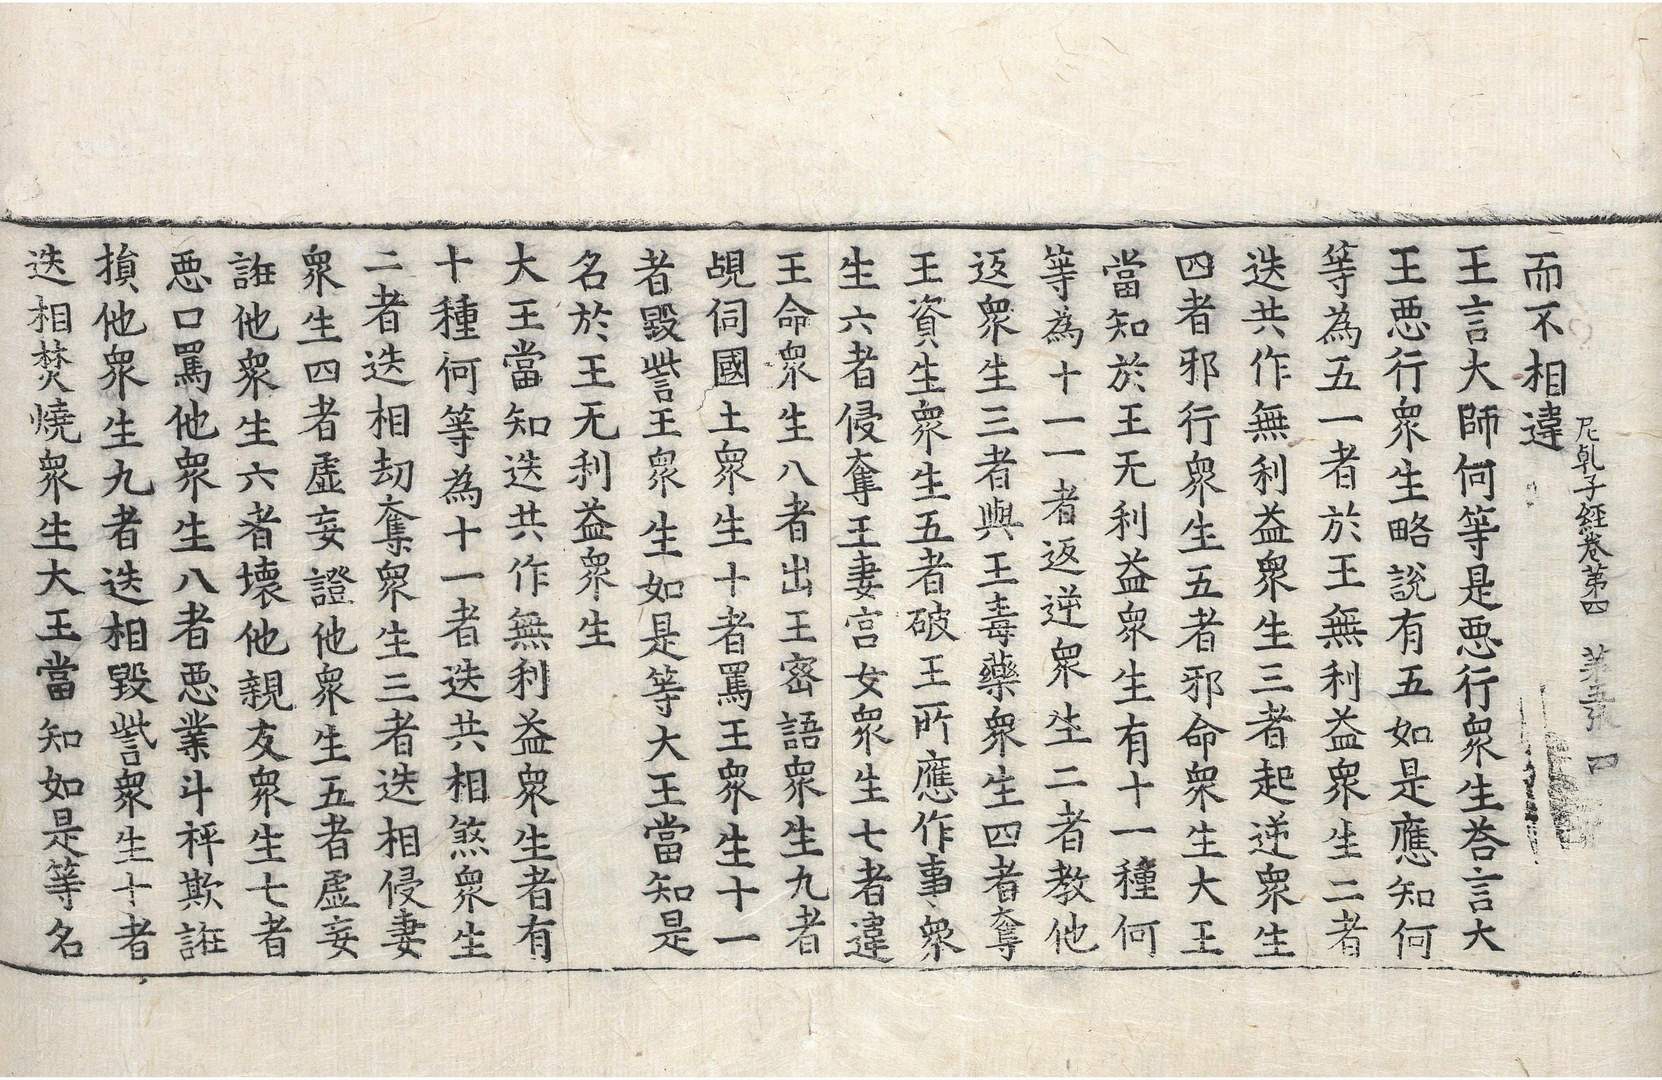 尼乹子經卷第四 第五張 四
而不相違
王言大師何等是𢙣行衆生荅言大
王𢙣行衆生略說有五如是應知何
等為五一者於王無利益衆生二者
迭共作無利益衆生三者起逆衆生
四者邪行衆生五者邪命衆生大王
當知於王无利益衆生有十一種何
等為十一一者返逆衆生二者教他
返衆生三者與王毒藥衆生四者奪
王資生衆生五者破王所應作事衆
生六者侵奪王妻宫女衆生七者違
王命衆生八者出王密語衆生九者
覘伺國土衆生十者罵王衆生十一
者毀訾王衆生如是等大王當知是
名於王无利益衆生
大王當知迭共作無利益衆生者有
十種何等為十一者迭共相煞衆生
二者迭相刧奪衆生三者迭相侵妻
衆生四者虛妄證他衆生五者虛妄
誑他衆生六者壊他親友衆生七者
𢙣口罵他衆生八者𢙣業斗秤欺誑
損他衆生九者迭相毀訾衆生十者
迭相焚燒衆生大王當知如是等名